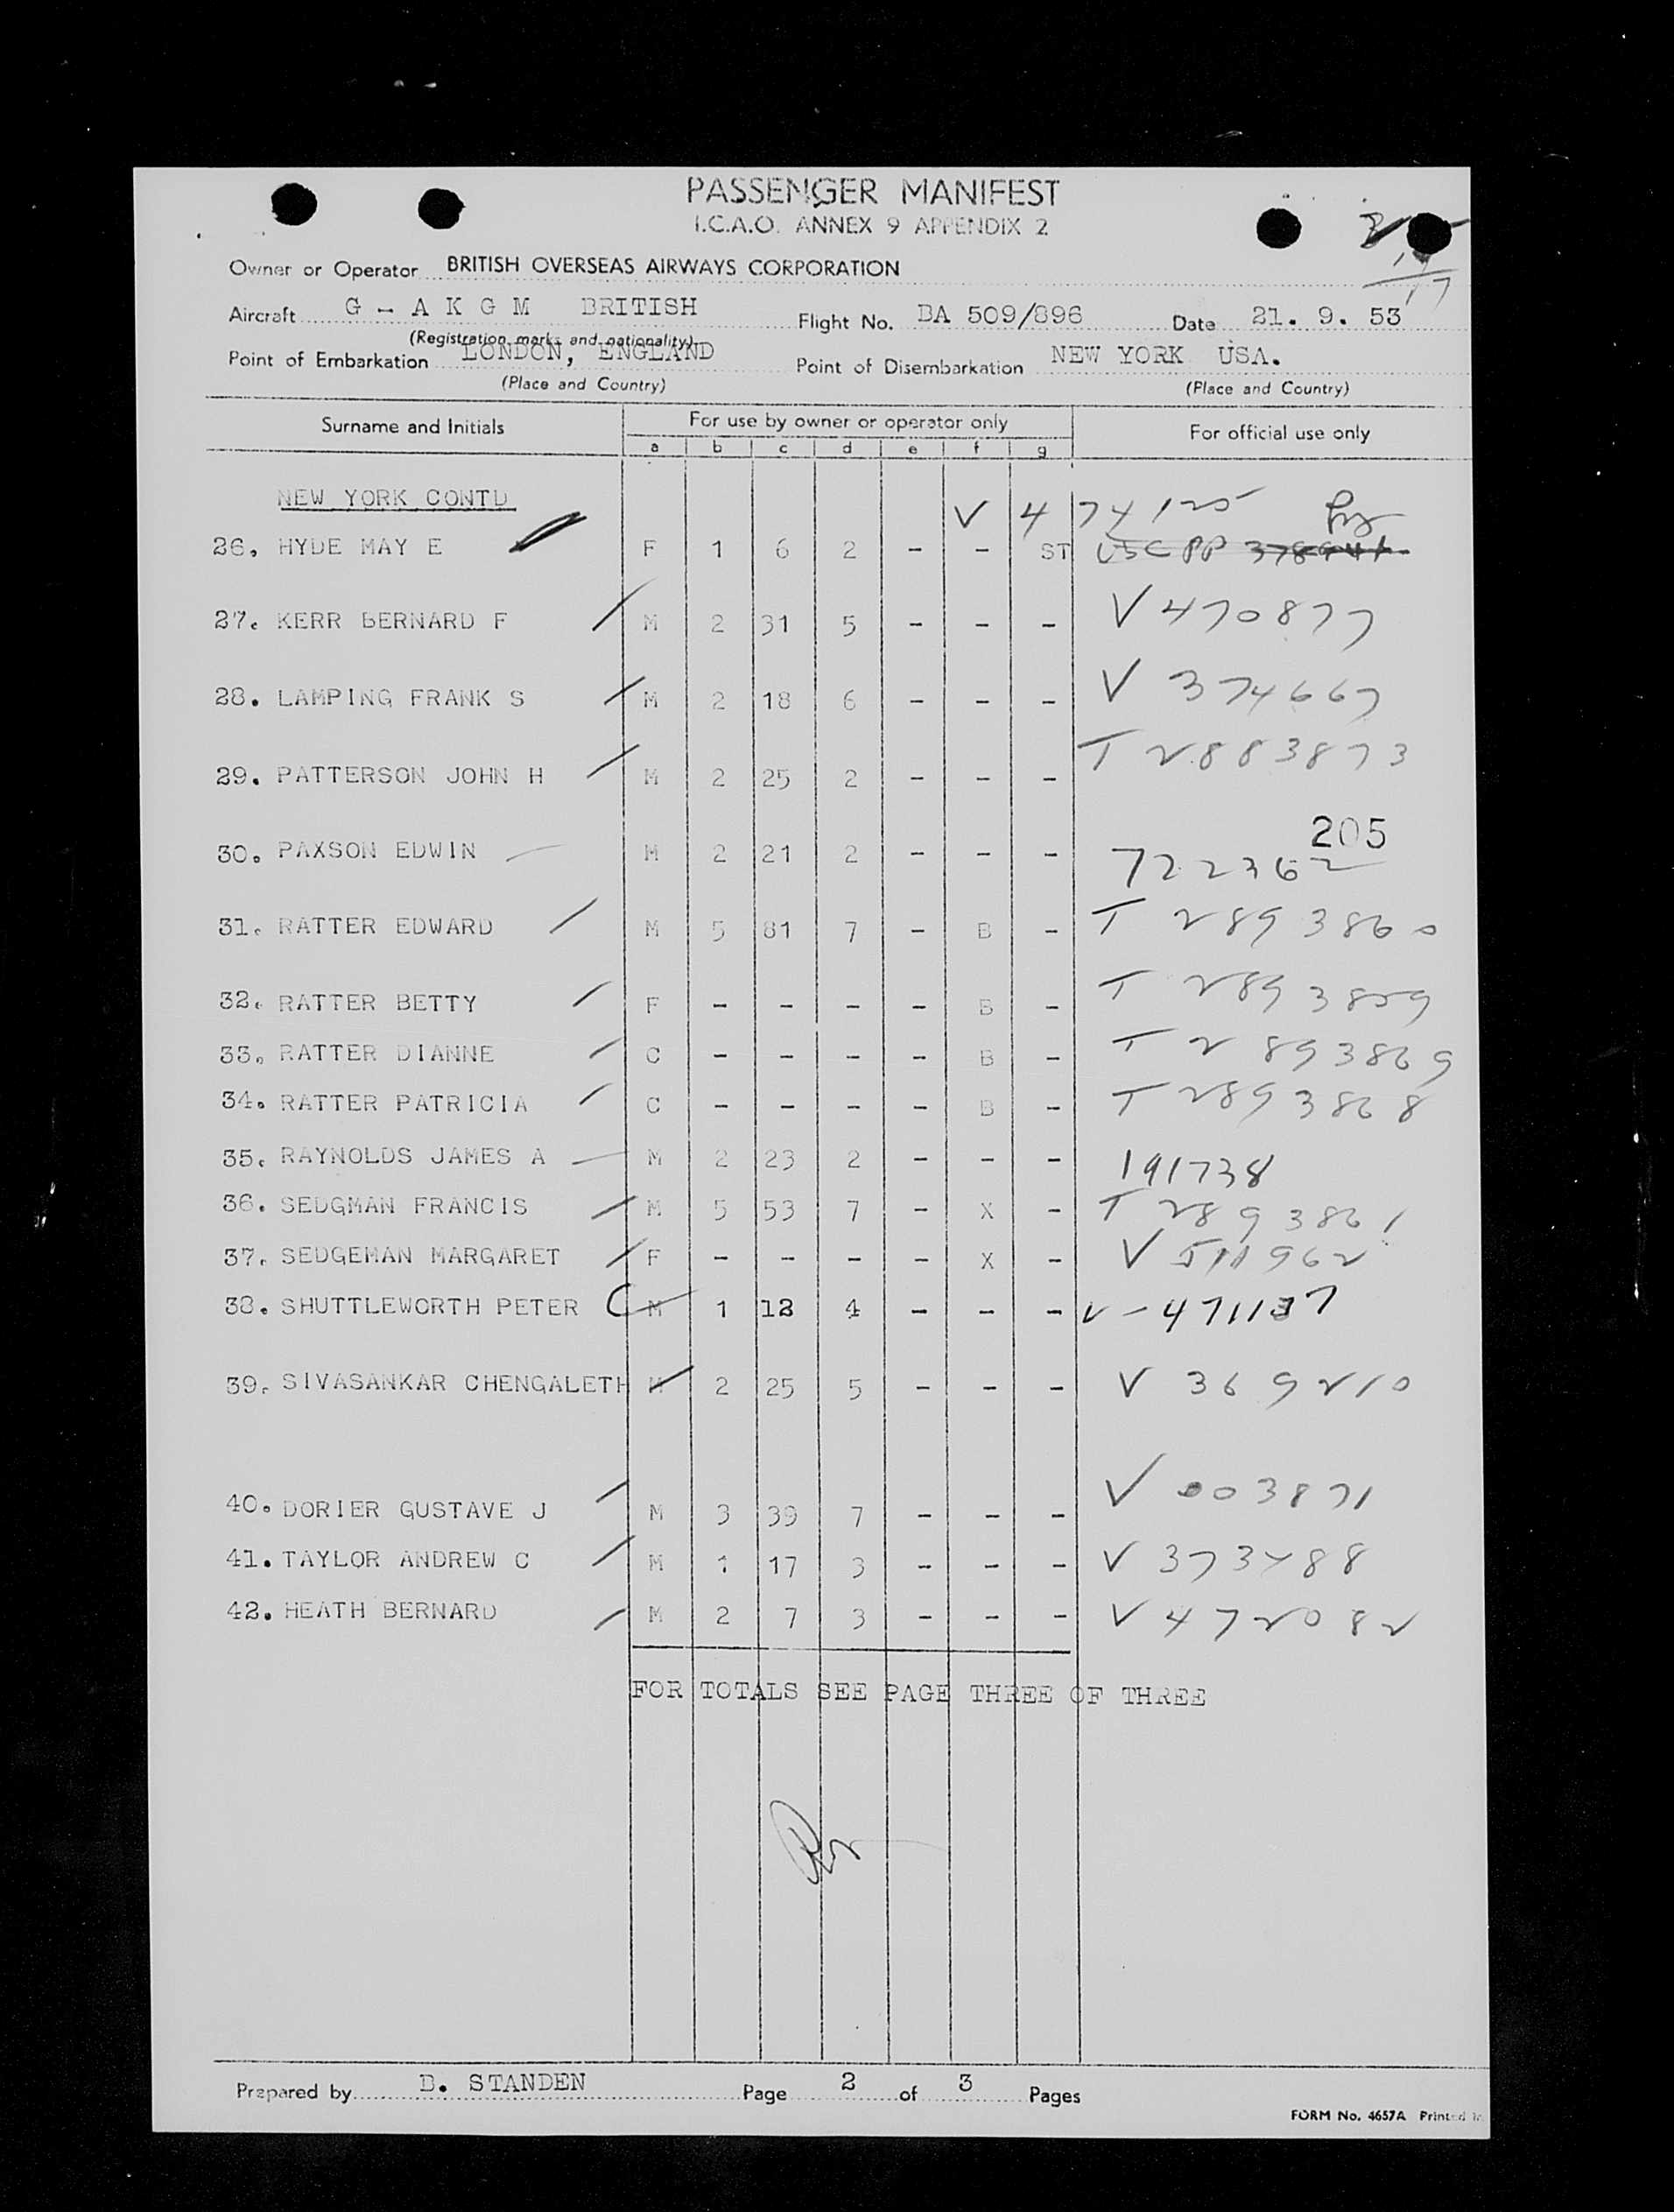 PASSENGER MANIFEST
I.C.A.O. ANNEX 9 APPENDIX 2
Owner or Operator BRITISH OVERSEAS AIRWAYS CORPORATION
Aircraft G - A K G M BRITISH Flight No. BA 509/896 Date 21. 9. 53
(Registration marks and nationality)
Point of Embarkation LONDON, ENGLAND Point of Disembarkation NEW YORK USA.
(Place and Country) (Place and Country)
Surname and Initials For use by owner or operator only For official use only
a b c d e f g
NEW YORK CONTD V 474125
26. HYDE MAY E F 1 6 2 - - ST USC PP
27. KERR BERNARD F M 2 31 5 - - - V 470877
28. LAMPING FRANK S M 2 18 6 - - - V 374667
29. PATTERSON JOHN H M 2 25 2 - - - T 2883873
205
30. PAXSON EDWIN M 2 21 2 - - - 722362
31. RATTER EDWARD M 5 81 7 - B - T 2893860
32. RATTER BETTY F - - - - B - T 2893859
33. RATTER DIANNE C - - - - B - T 2893869
34. RATTER PATRICIA C - - - - B - T 2893868
35. RAYNOLDS JAMES A M 2 23 2 - - - 191738
36. SEDGMAN FRANCIS M 5 53 7 - X - T 2893861
37. SEDGEMAN MARGARET F - - - - X - V 511962
38. SHUTTLEWORTH PETER C M 1 12 4 - - - V-471137
39. SIVASANKAR CHENGALETH M 2 25 5 - - - V 369210
40. DORIER GUSTAVE J M 3 39 7 - - - V 003871
41. TAYLOR ANDREW C M 1 17 3 - - - V 373788
42. HEATH BERNARD M 2 7 3 - - - V 472082
FOR TOTALS SEE PAGE THREE OF THREE
Prepared by D. STANDEN Page 2 of 3 Pages
FORM No. 4657A Printed in